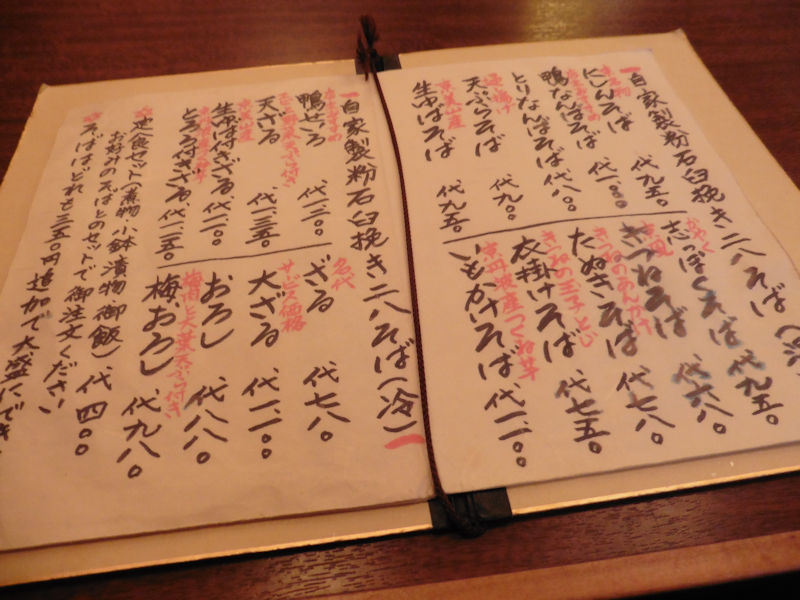 自家製粉石臼挽き二八そば
京名物
にしんそば 代九五〇
鴨なんばそば
とりなんばそば
天ぷらそば
京美山産
生ゆばそば 代九五〇
かやく
志っぽくそば 代九五〇
京風
きつねそば 代六八〇
きつねのあんかけ
たぬきそば 代七八〇
きざみの玉子とじ
衣掛けそば 代七五〇
京丹波産つくね芋
いもかけそば 代一、一〇〇
自家製粉石臼挽き二八そば(冷)
鴨せいろ 代一、三〇〇
天ざる 代一、三五〇
京美山産
生ゆば付きざる 代一、一〇〇
とろろ付きざる 代一、二五〇
名代
ざる 代七八〇
サービス価格
大ざる 代一、一〇〇
おろし 代八八〇
梅肉と大葉天ぷら付き
梅おろし 代九八〇
定食セット(煮物 小鉢 漬物 御飯) 代四〇〇
お好みのそばとのセットで御注文ください
そばはどれも三五〇円追加で大盛にでき